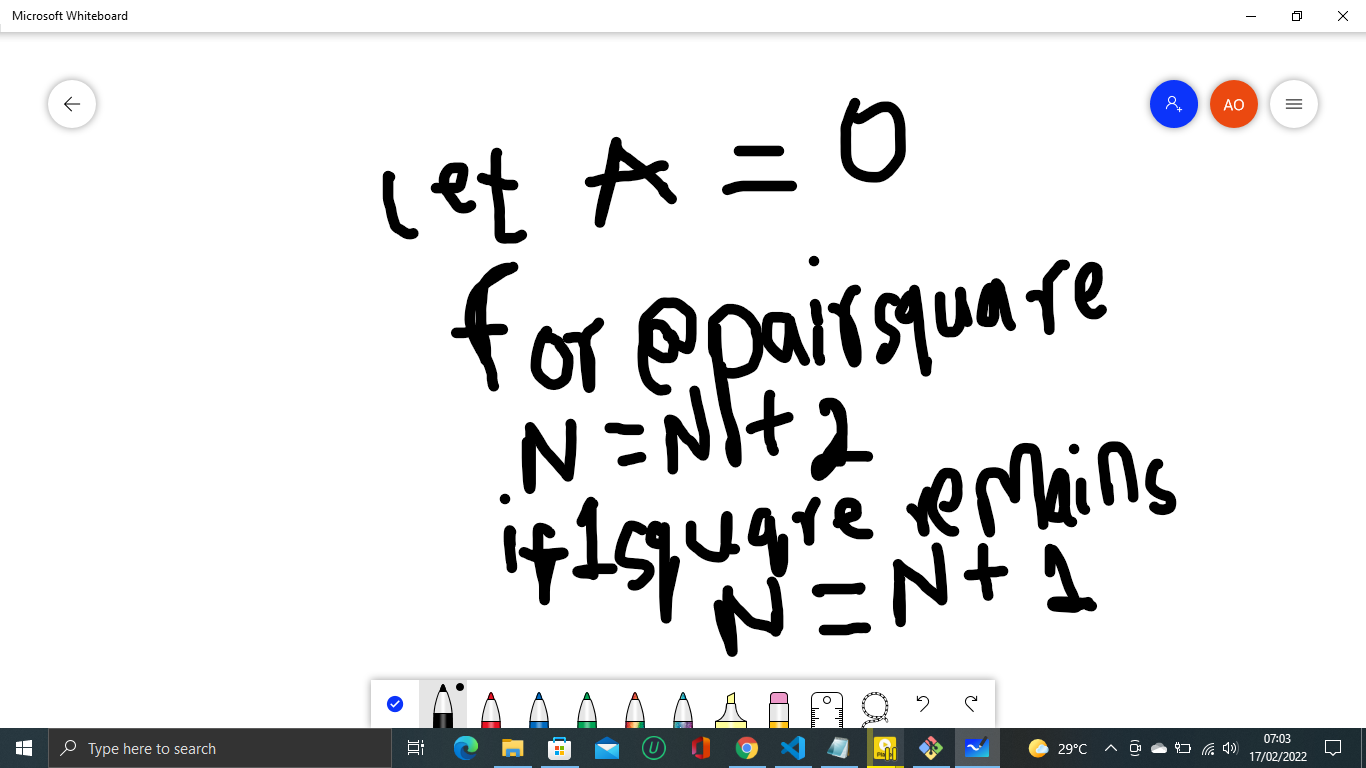 Microsoft Whiteboard
AO
let A = 0
for @ pair square
N = N + 2
if 1 square remains
N = N + 1
Type here to search
29°C
07:03
17/02/2022